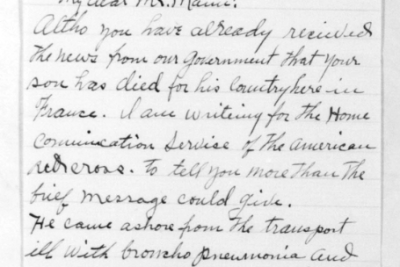 My dear Mr. Mann:
Altho you have already recieved
the news from our government that your
son has died for his country here in
France. I am writeing for the Home
comunication Service of the american
redcross. To tell you more than the
brief message could give.
He came ashore from the transport
ill with broncho pneumonia and